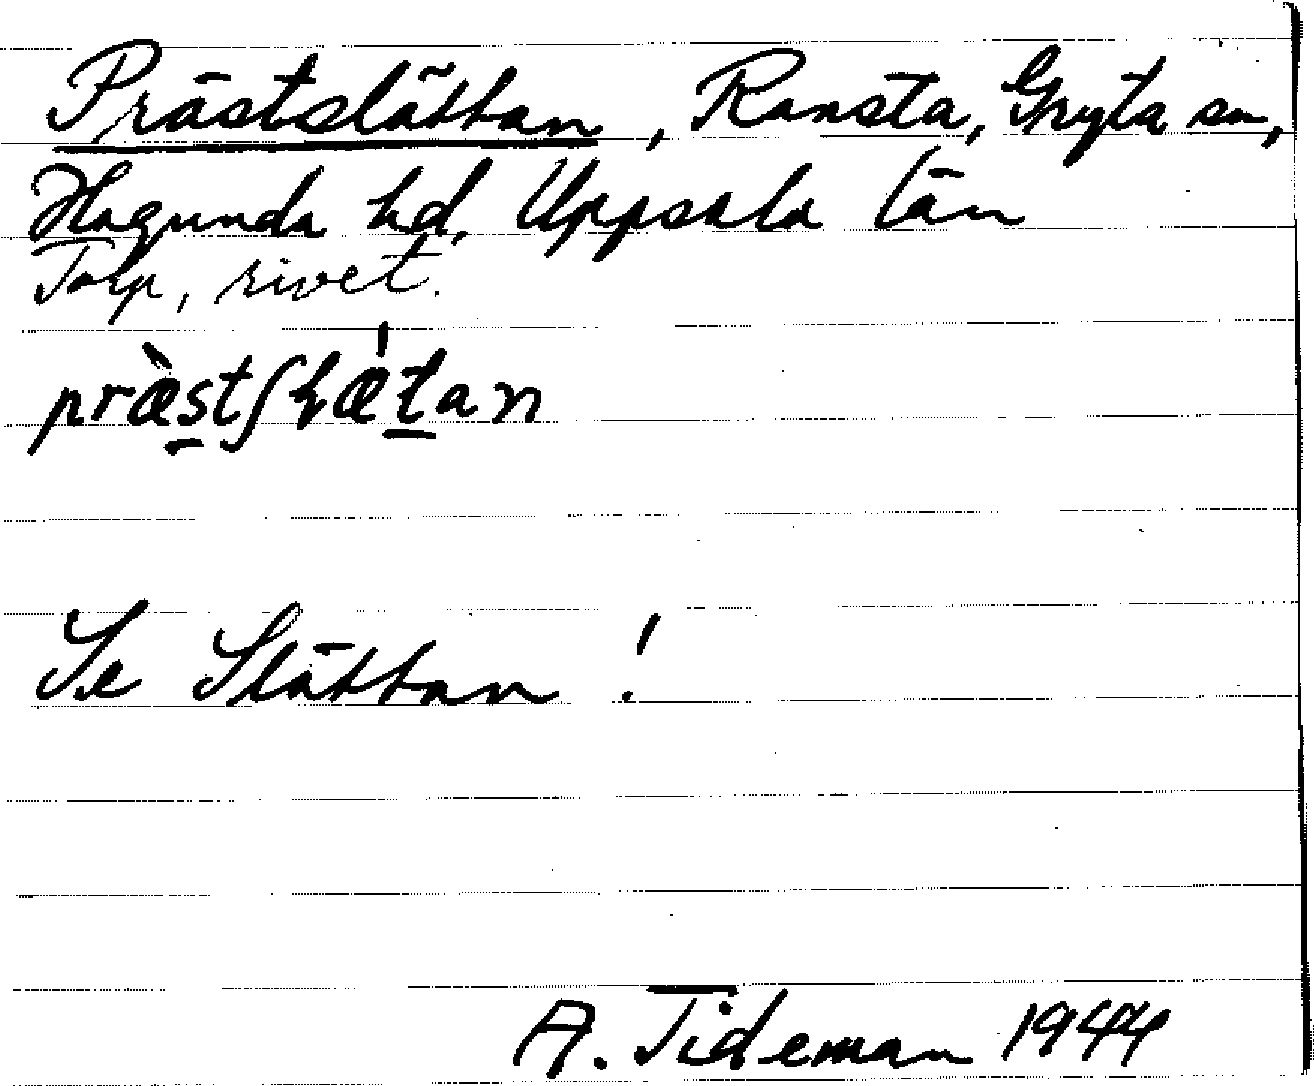 Prästslättan, Ransta, Gryta sn,
Hagunda hd, Uppsala län
Torp, rivet.
præ̀stʃɫǽtan
Se Slättan!
A. Tideman 1944